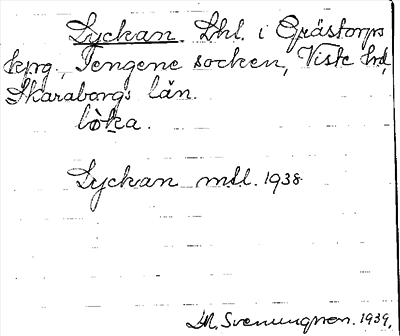 Lyckan. Lht. i Grästorps
kprg., Tengene socken, Viste hrd,
Skaraborgs län.
lò̜ka.
Lyckan msl. 1938
M. Svenungsson. 1939.